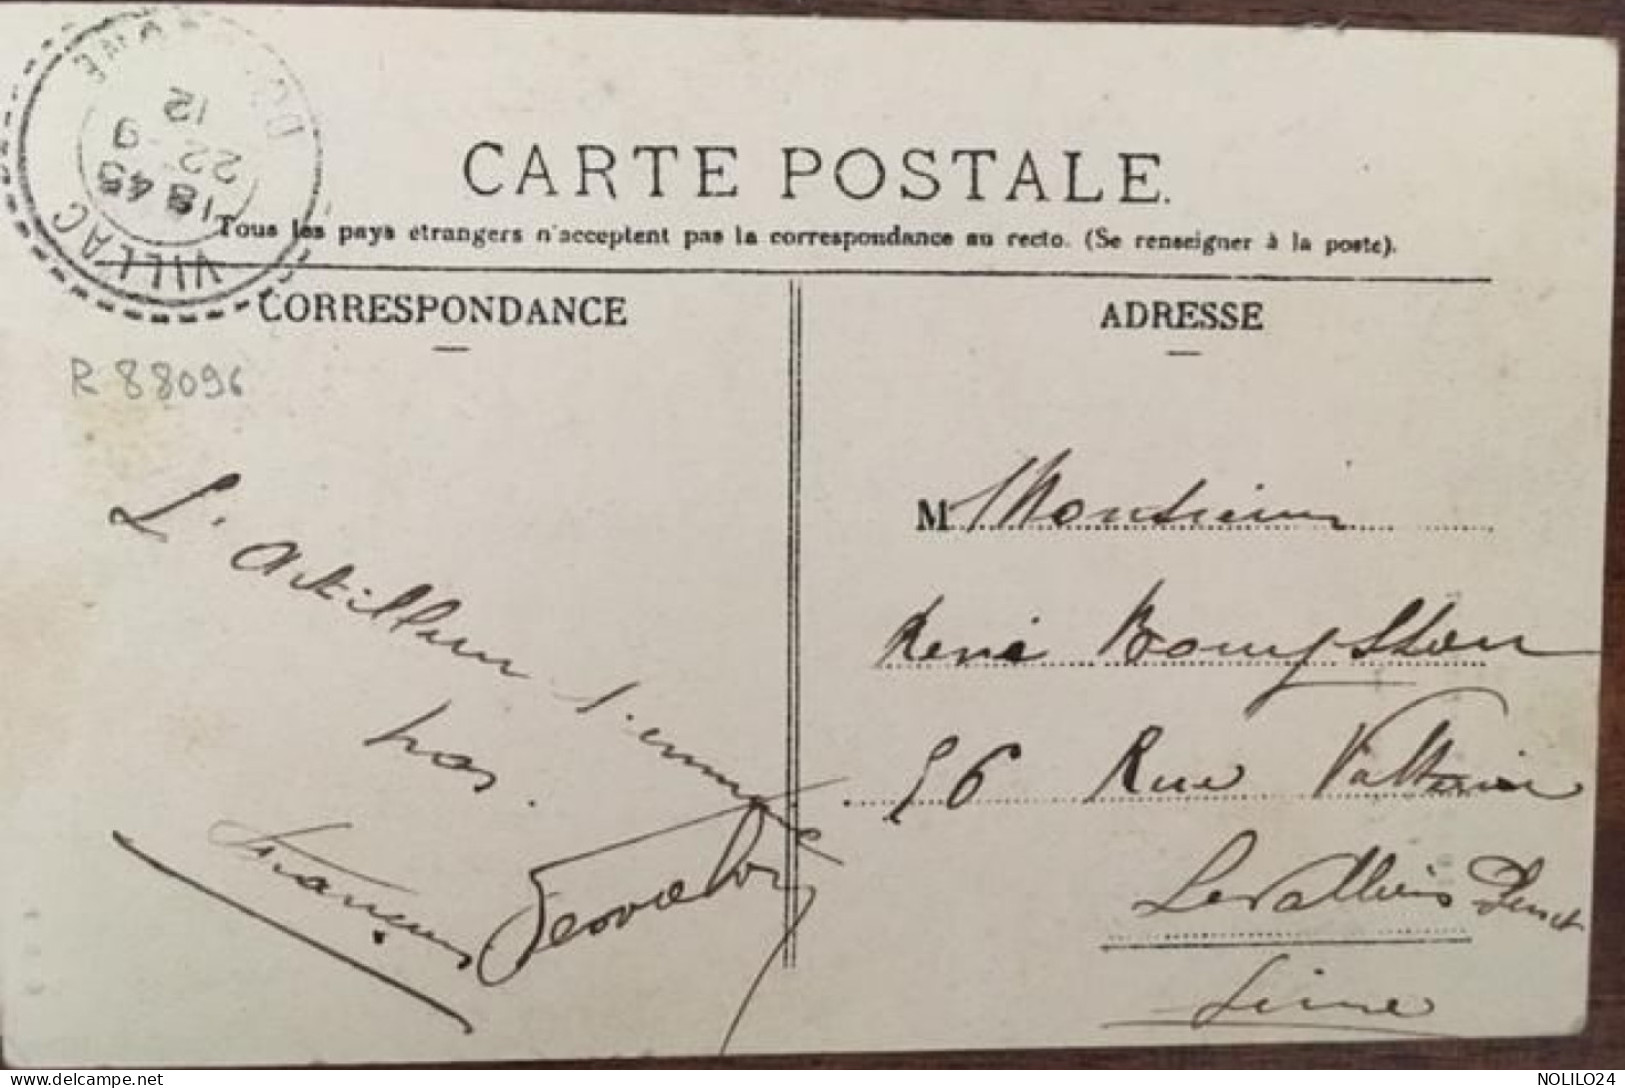 VILLAC
DORDOGNE
18 45
22 - 9
12
CARTE POSTALE.
Tous les pays étrangers n'acceptent pas la correspondance au recto. (Se renseigner à la poste).
CORRESPONDANCE
ADRESSE
R 88096
L'artilleur s'ennuie
pas.
François
M Monsieur
René
56 Rue Vallier
Levallois Perret
Seine
NOLILO24